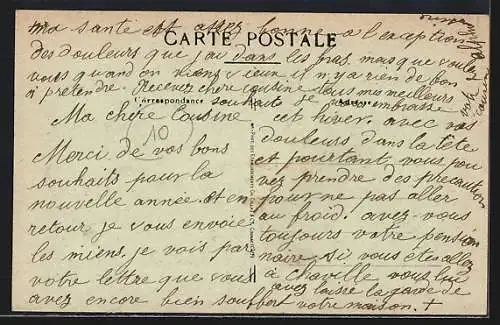 Ma chère Cousine,
Merci de vos bons
souhaits pour la
nouvelle année et en
retour je vous envoie
les miens. je vois par
votre lettre que vous
avez encore bien souffert
cet hiver. avec vos
douleurs dans la tête
et pourtant vous pou
vez prendre des precautions
pour ne pas aller
au froid. avez-vous
toujours votre pension
naire, si vous étes allez
à chaville vous lui
avez laissé la garde de
votre maison. +
ma santé est assez bonne a l'exception
des douleurs que j'ai dans les bras, mais que voulez
vous quand on viens vieux il n'y a rien de bon
à prétendre. Recevez chère cousine tous mes meilleurs
souhaits je vous embrasse
votre
cousine
CARTE POSTALE
Correspondance
10